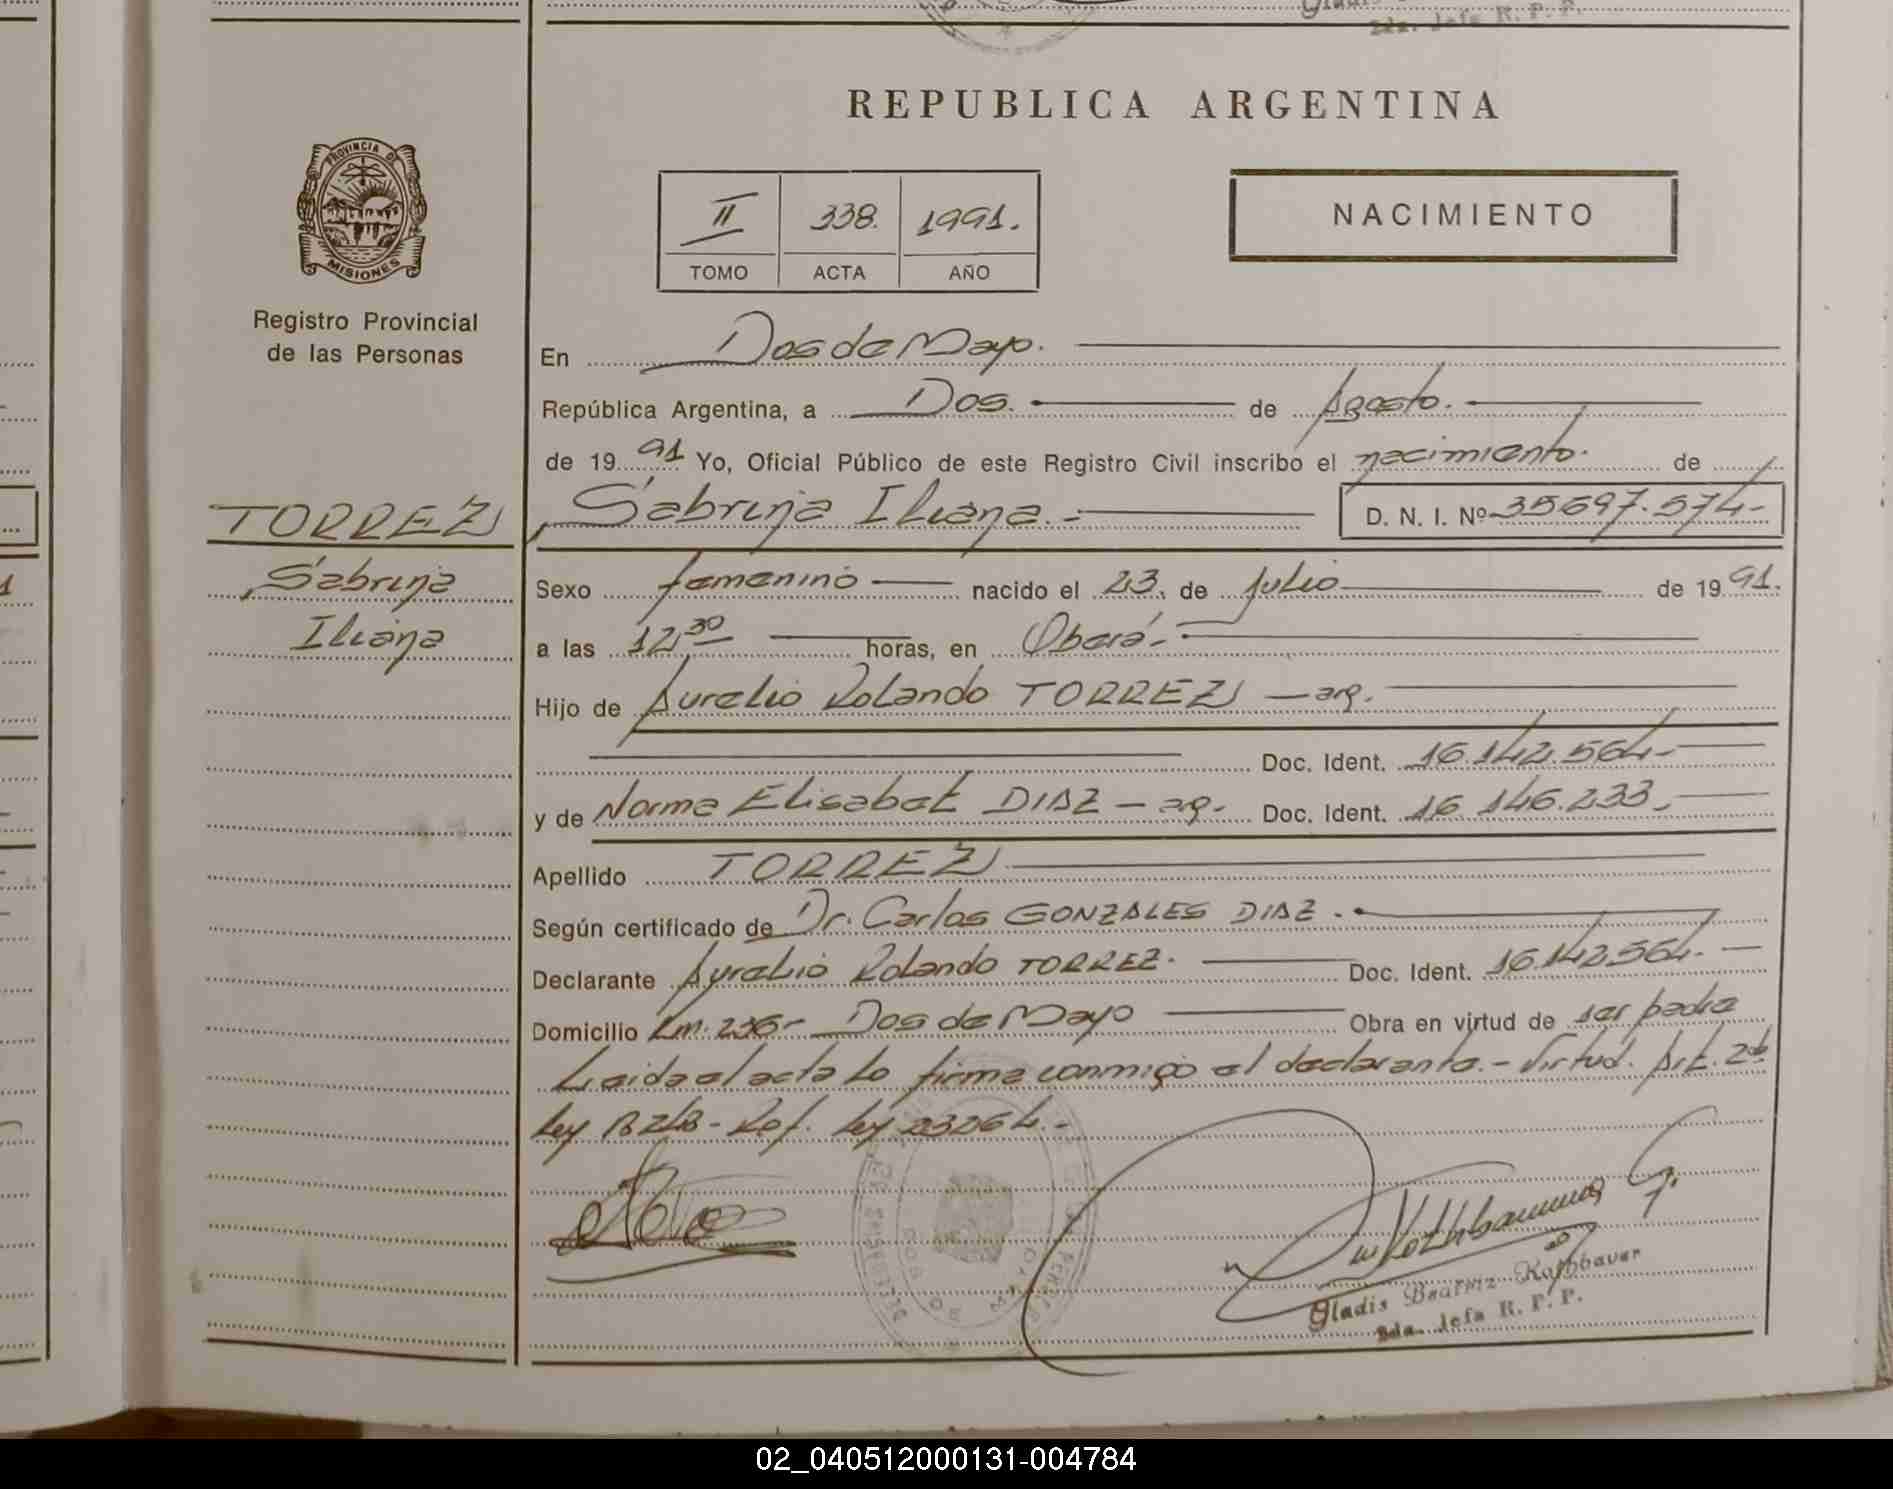 REPUBLICA ARGENTINA
PROVINCIA DE
MISIONES
Registro Provincial
de las Personas
II 338. 1991.
TOMO ACTA AÑO
NACIMIENTO
En Dos de Mayo.
República Argentina, a Dos. de Agosto.
de 19 91 Yo, Oficial Público de este Registro Civil inscribo el nacimiento. de
TORREZ
Sabrina Iliana.- D. N. I. Nº 35697.574-
Sabrina
Iliana
Sexo femenino nacido el 23. de julio de 19 91.
a las 12,30 horas, en Oberá-
Hijo de Aurelio Rolando TORREZ - arg.
Doc. Ident. 16.142.564-
y de Norma Elisabet DIAZ - arg. Doc. Ident. 16.146.233.
Apellido TORREZ
Según certificado de Dr. Carlos GONZALES DIAZ.
Declarante Aurelio Rolando TORREZ. Doc. Ident. 16.142.564.
Domicilio Km. 236- Dos de Mayo Obra en virtud de ser padre
Leida el acta la firma conmigo el declarante.- Virtud. Art. 2do
Ley 18248- Ref. Ley 23264.-
DOS DE MAYO
Gladis Beatriz Rothbauer
2da. Jefa R. P. P.
02_040512000131-004784